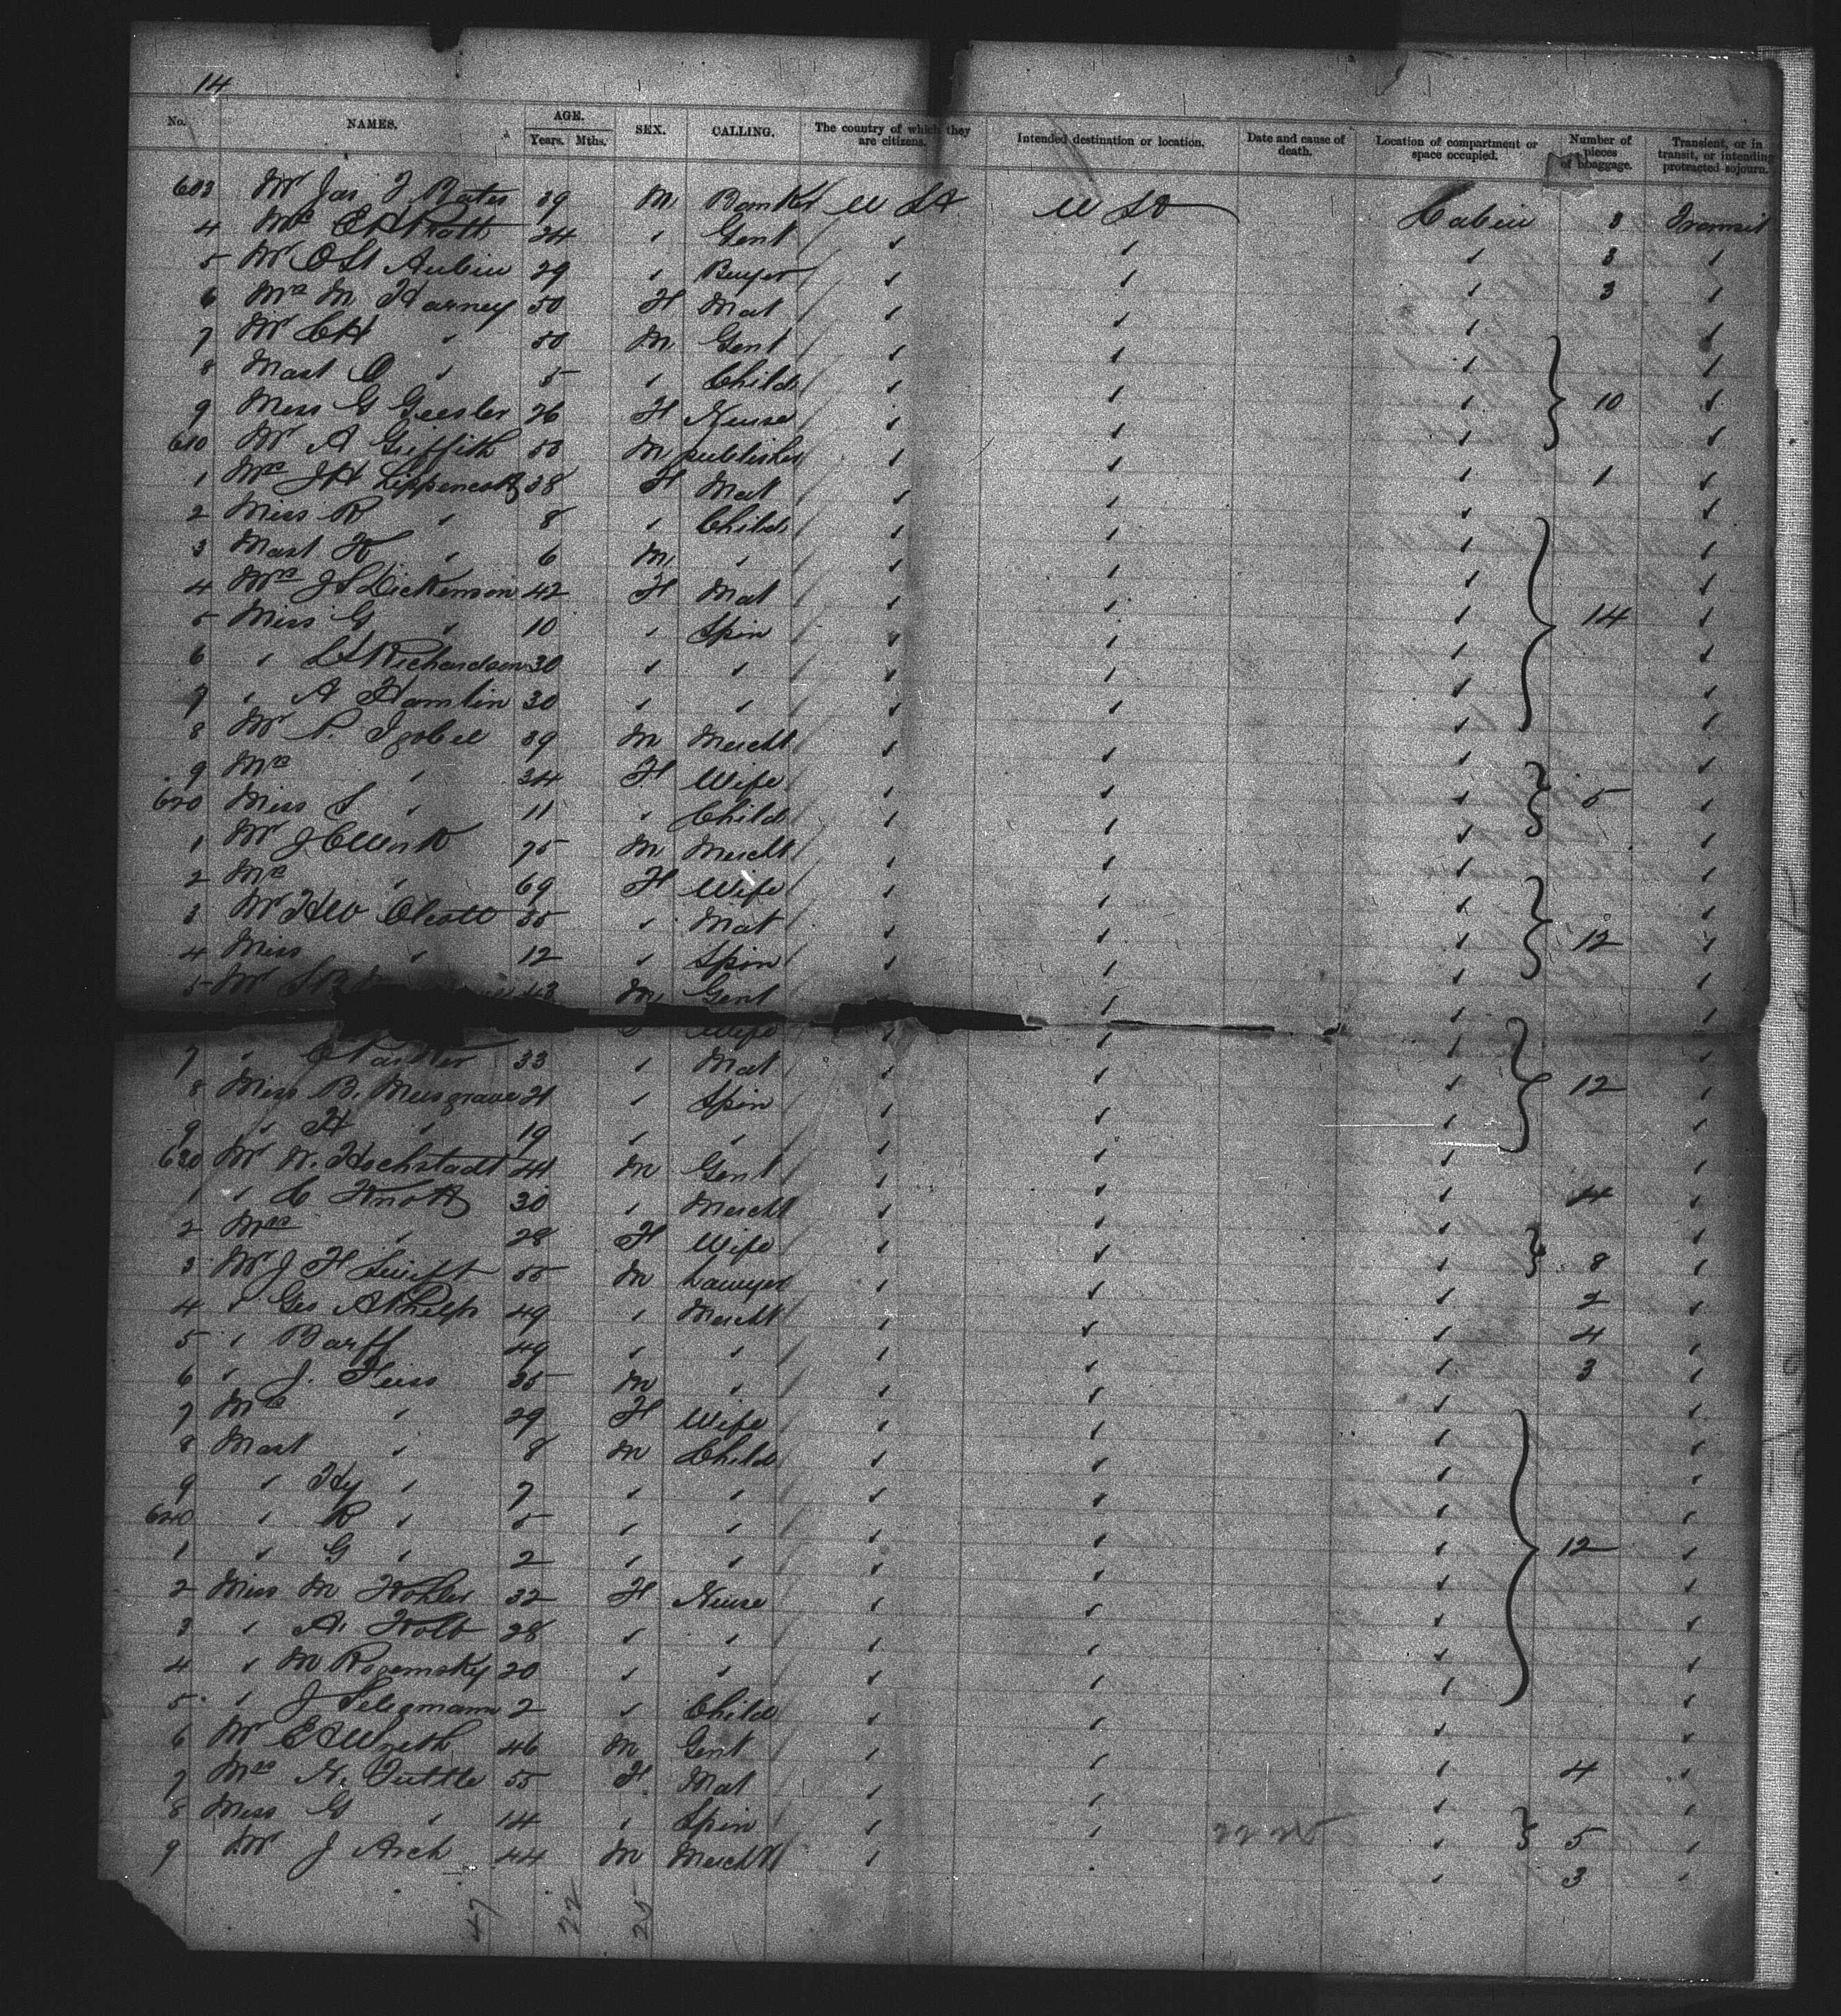 14
No. NAMES. AGE. Years. Mths. SEX. CALLING. The country of which they are citizens. Intended destination or location. Date and cause of death. Location of compartment or space occupied. Number of pieces of baggage. Transient, or in transit, or intending protracted sojourn.
603 Mr Jas F Bates 39 M Banker U St U St Cabin 3 Transit
4 Mr 24 " Gent " " " 3 "
5 Mr O St Aubin 29 " Buyer " " " 3 "
6 Mrs M Harney 50 F Mat " " " "
7 Mr CH " 50 M Gent " " " "
8 Mast O " 5 " Child " " " 10 "
9 Miss G Geesler 26 F Nurse " " " "
610 Mr A Griffith 50 M publisher " " " 1 "
1 Mrs JH Lippencott 38 F Mat " " " "
2 Miss R " 8 " Child " " " "
3 Mast H " 6 M " " " " "
4 Mrs J S Dickenson 42 F Mat " " " 14 "
5 Miss G " 10 " Spin " " " "
6 " L S Richardson 30 " " " " " "
7 " A Hamlin 30 " " " " " "
8 Mr P. 39 M Mercht " " " "
9 Mrs " 34 F Wife " " " 5 "
620 Miss S " 11 " Child " " " "
1 Mr J C 75 M Mercht " " " "
2 Mrs " 69 F Wife " " " "
3 Mr HW Olcott 35 " Mat " " " 12 "
4 Miss " 12 " Spin " " " "
5 Mr 43 M Gent " " " "
Wife " " " "
7 " 33 " Mat " " " 12 "
8 Miss B. Musgrave 21 " Spin " " " "
9 " H " 19 " " " " " "
630 Mr N. Hochstadt 41 M Gent " " " 4 "
1 " C Knott 30 " Mercht " " " "
2 Mrs " 28 F Wife " " " 8 "
3 Mr J F Swift 55 M Lawyer " " " 2 "
4 " Geo A Phelps 49 " Mercht " " " 4 "
5 " Barff 49 " " " " " 3 "
6 " J. Feiss 35 M " " " " "
7 Mrs " 29 F Wife " " " "
8 Mast " 8 M Child " " " "
9 " Hy " 7 " " " " " "
640 " R " 5 " " " " " "
1 " G " 2 " " " " " 12 "
2 Miss M Kohler 32 F Nurse " " " "
3 " A. 28 " " " " " "
4 " M Rosemsky 20 " " " " " "
5 " J Selegmann 2 " Child " " " "
6 Mr 46 M Gent " " " 4 "
7 Mrs N. Tuttle 55 F Mat " " " "
8 Miss G " 14 " Spin " " " 5 "
9 Mr J Arch 44 M Mercht " " " 3 "
47 22 25